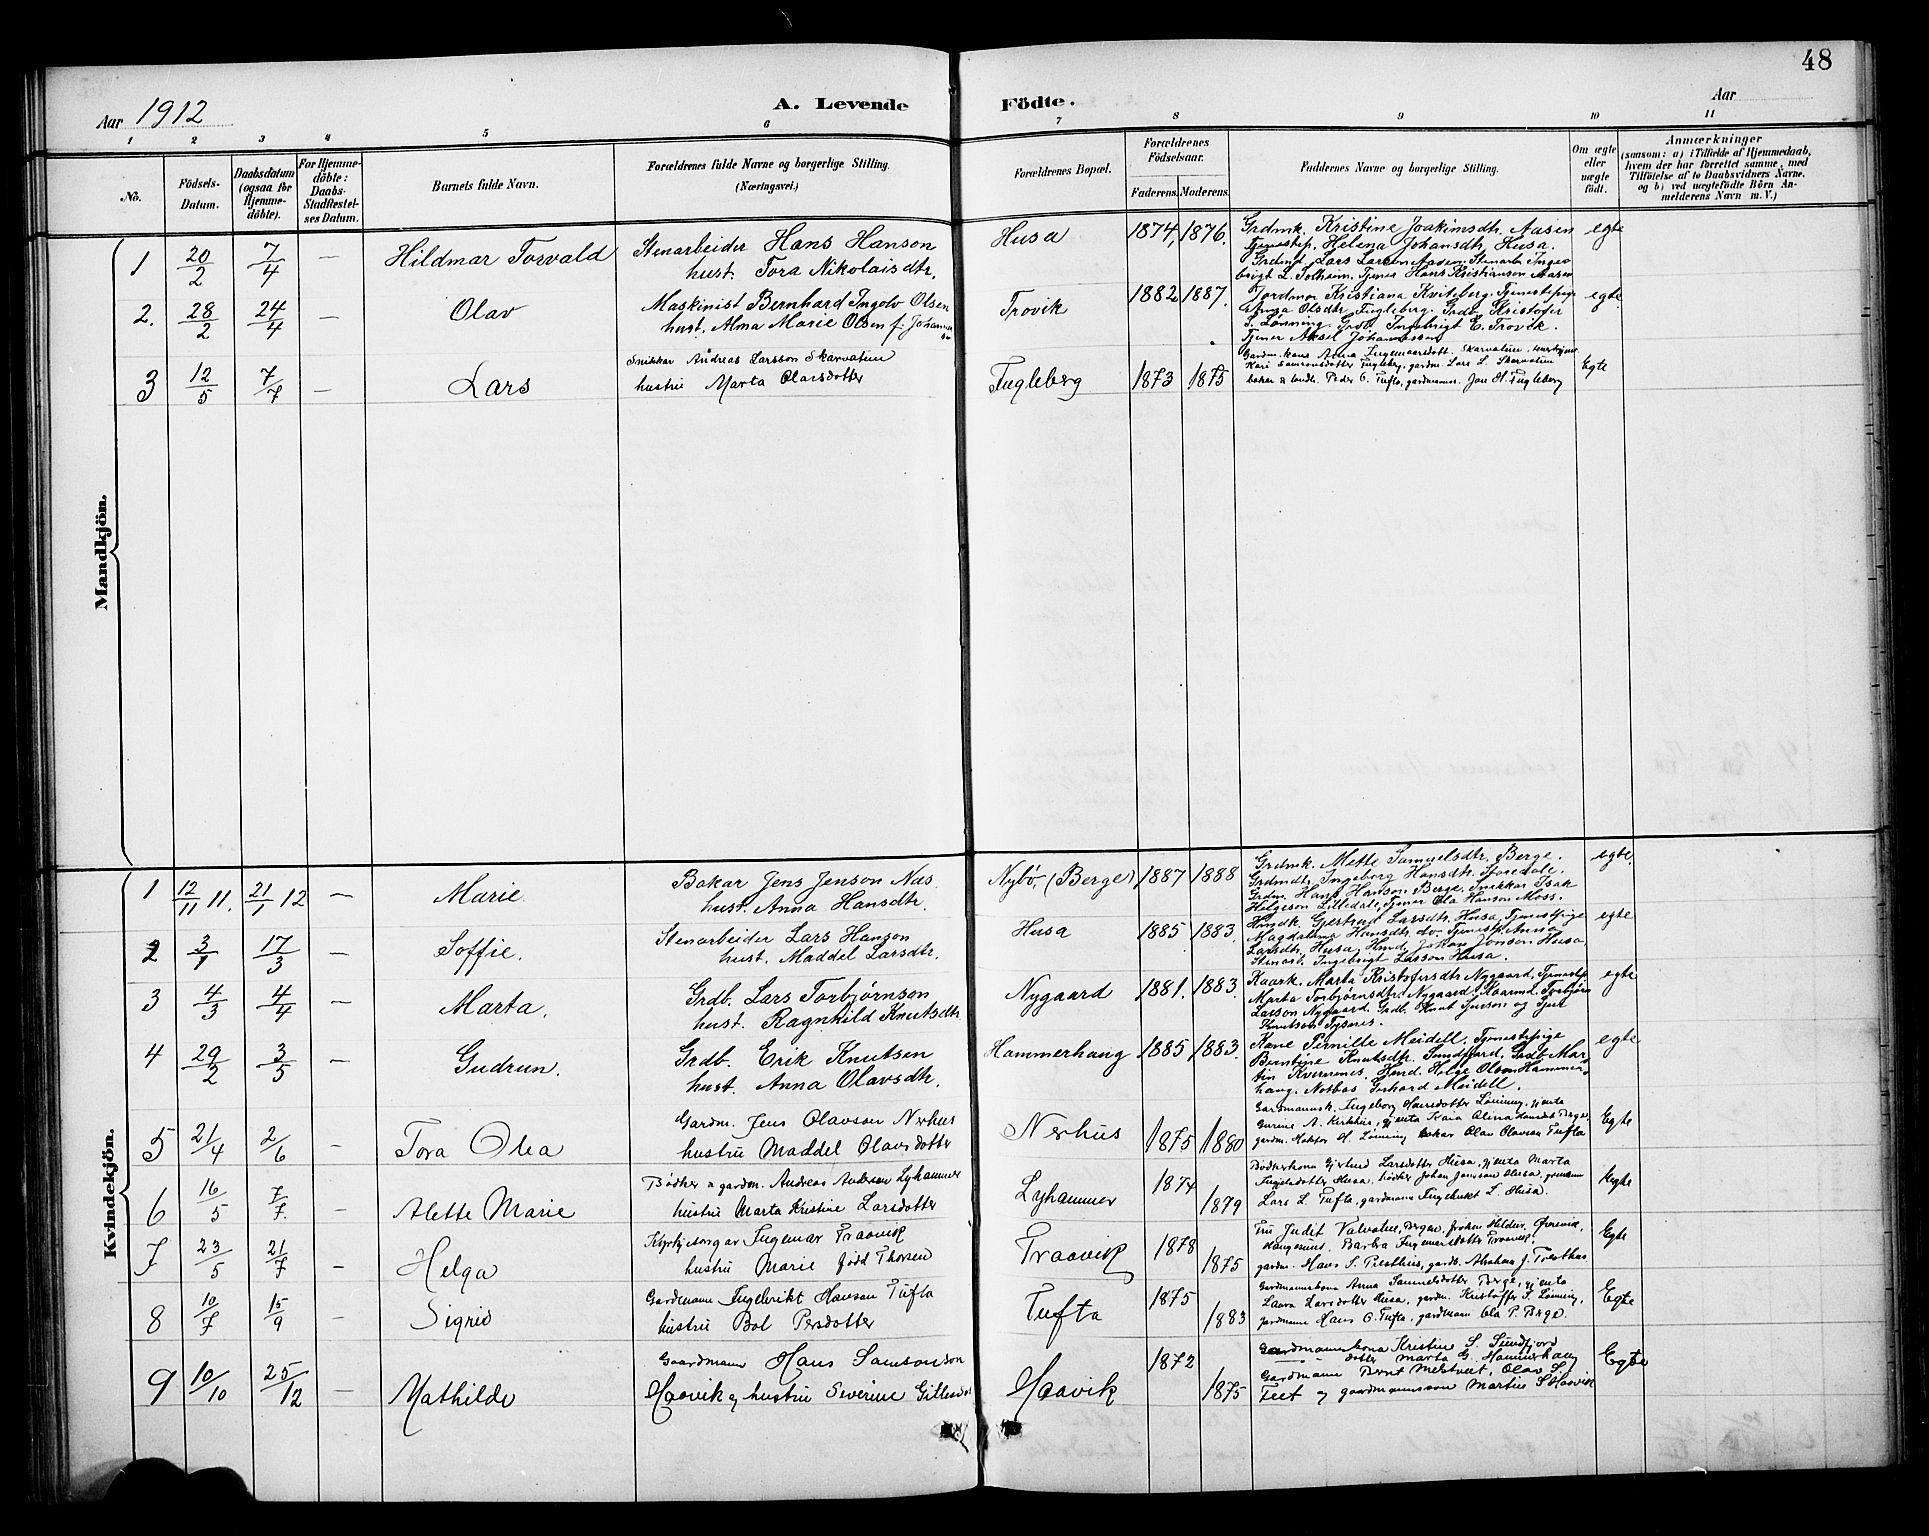 48
Aar 1912
A. Levende Födte.
Aar
1 2 3 4 5 6 7 8 9 10 11
No.
Födsels-Datum.
Daabsdatum (ogsaa for Hjemme-döbte).
For Hjemme-döbte: Daabs-Stadfæstel-ses Datum.
Barnets fulde Navn.
Forældrenes fulde Navne og borgerlige Stilling. (Næringsvei.)
Forældrenes Bopæl.
Forældrenes Födselsaar.
Faderens. Moderens.
Faddernes Navne og borgerlige Stilling.
Om ægte eller uægte födt.
Anmærkninger
(saasom: a) i Tilfælde af Hjemmedaab,
hvem der har forrettet samme, med
Tilföielse af to Daabsvidners Navne,
og b) ved uægtefödte Börn An-
melderens Navn m. V.)
Mandkjön.
1 20/2 7/4 — Hildmar Torvald
Stenarbeider Hans Hanson
hust. Tora Nikolaisdtr.
Husa 1874, 1876.
Grdmk. Kristine Joakimsdtr. Aasen
Tjenestep. Helena Johansdtr. Husa.
Grdmd. Lars Larson Aasen. Stenarb. Inge-
brigt L. Solheim. Tjener Hans Kristianson Aasen
egte
2. 28/2 24/4 — Olav
Maskinist Bernhard Ingolv Olsen
hust. Alma Marie Olsen f. Johannes
Trovik 1882 1887.
Jordmor Kristiana Kviteberg. Tjenestepige
Olsdtr. Fugleberg. Grdb. Kristofer
S. Lønning. Grdb. Ingebrigt E. Trovik.
Tjener Aksel Johannessen
egte
3 12/5 7/7 — Lars
Snikkar Andreas Larsson Skarvatun
hustru Marta Olarsdotter
Fugleberg 1873 1875
Gardm. kone Anna Ingemaarsdott. Skarvatun,
Kari Samsonsdotter Fugleberg, gardm. Lars L. Skarvatun
bakar & landh. Peder O. Tufta, gardmann. Jon H. Fugleberg
Egte
Kvindekjön.
1 12/11 11. 21/1 12 — Marie.
Bakar Jens Jenson Nas
hust. Anna Hansdtr.
Nybö, (Berge) 1887 1888
Grdmk. Mette Samuelsdtr. Berge.
Grdmdtr. Ingeborg Hansdtr. Sloredale.
Grdm. Hans Hanson Berge. Snikkar Isak
Helgeson Lilledale, Tjener Ola Hanson Moss.
egte.
2 3/1 17/3 — Soffie.
Stenarbeider Lars Hanson
hust. Maddel Larsdtr.
Husa 1885 1883.
Hmdk. Gjertrud Larsdtr. Husa, Tjenestepige
Magdalena Hansdtr. do. Tjenestp. Anna
Larsdtr. Husa, Hmd. Johan Jonson Husa,
Stenarb. Ingebrigt Larsson Husa.
egte
3 4/3 4/4 — Marta.
Grdb. Lars Torbjørnson
hust. Ragnhild Knutsdtr
Nygaard 1881. 1883.
Kaark. Marta Kristofersdtr. Nygaard, Tjenestp.
Marta Torbjørnsdtr. Nygaard. Kaarmd. Torbjørn
Larson Nygaard. Grdb. Knut Tjerson og Sjur
Knutson Tysnes.
egte
4 29/2 3/5 — Gudrun.
Grdb. Erik Knutsen
hust. Anna Olavsdtr.
Hammerhaug 1885 1883.
Kone Pernille Meidell, Tjenestepige
Berntine Knutsdtr. Sundfjord, Grdb. Mar-
tin Kvernenes. Hmd. Helge Olson Hammer-
haug. Notbas Gerhard Meidell.
egte
5 21/4 2/6 — Tora Olea
Gardm. Jens Olavson Nerhus
hustru Maddel Olavsdotter
Nerhus 1875 1880
Gardmannsk. Ingeborg Hansdotter Lönning, gjenta
Gurine A. Kirkhus, gjenta Kaia Olina Hansdtr Berge,
gardm. H. Lönning bokar Olav Olavson Tufta
Egte
6 16/5 7/7. — Alette Marie
Bödker & gardm. Andreas Anderson Lyhammer
hustru Marta Kristine Larsdotter
Lyhammer 1874 1879
Bödkerkona Gjertrud Larsdotter Husa, gjenta Marta
Husa, bödker Johan Jonsson Husa,
Lars L. Tufta, gardmann Ingebrikt L. Husa.
Egte
7 23/5 21/7 — Helga
Kyrkjesongar Ingemar Traavik
hustru Marie född Thorsen
Traavik 1878 1875
Fru Judit Valvatne, Bergen, fröken Heldur. Ørnevik,
Haugesund. Barbra Ingemarsdotter Traavik,
gardm. Hans S. Presthus, gardb. Abraham J. Presthus.
Egte
8 10/7 15/9 — Sigrid
Gardmann Ingebrikt Hansson Tufta
hustru Bol Persdotter
Tufta 1875 1883
Gardmannskona Anna Samuelsdotter Berge, gjenta
Laura Larsdotter Husa, gardm. Kristoffer S. Lönning,
gardmann Hans O. Tufta, gardmann Ola P. Berge.
Egte
9 10/10 25/12 — Mathilde
Gaardmann Hans Samsonson
Haavik og hustru Severine Gillesdot
Haavik 1872 1875
Gaardmannskona Kristine S. Sundfjord
dotter Marta G. Hammerhaug
Gardmann Bernt Mehtveit, Olav S.
Teet og gardmannsson Martin S Haavik
Egte